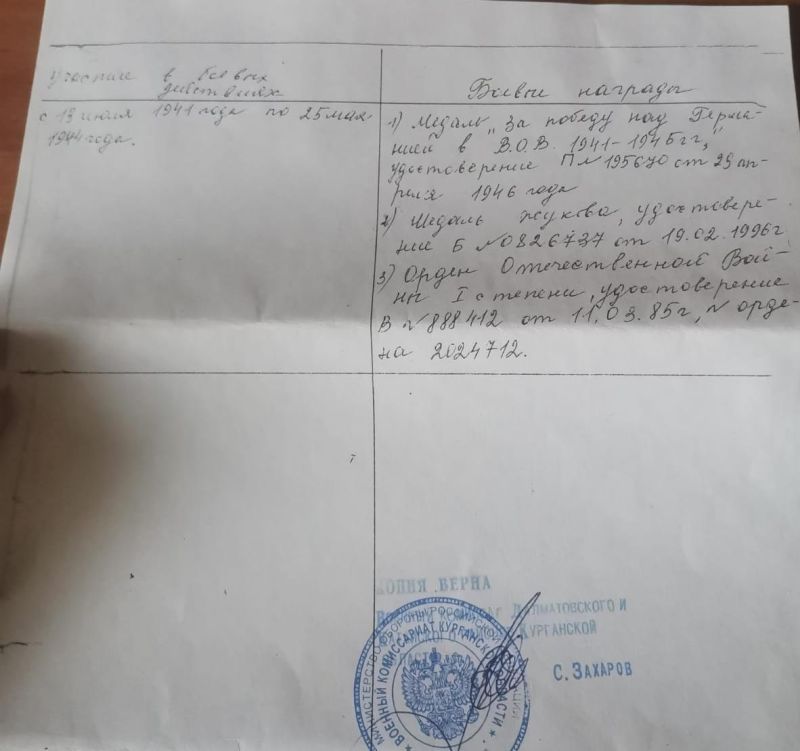 участие в боевых
действиях
Боевые награды
с 19 июля 1941 года по 25 мая
1944 года.
1) Медаль „За победу над Герма-
нией в В.О.В. 1941-1945гг,"
удостоверение П №195670 от 29 ап-
реля 1946 года
2) Медаль Жукова, удостовере-
ние Б №0826737 от 19.02.1996г
3) Орден Отечественной Вой-
ны I степени, удостоверение
В №888412 от 11.03.85г, № орде-
на 2024712.
КОПИЯ ВЕРНА
ДАЛМАТОВСКОГО И
КУРГАНСКОЙ
С. ЗАХАРОВ
МИНИСТЕРСТВО ОБОРОНЫ РОССИЙСКОЙ
ВОЕННЫЙ КОМИССАРИАТ КУРГАНСКОЙ ОБЛАСТИ